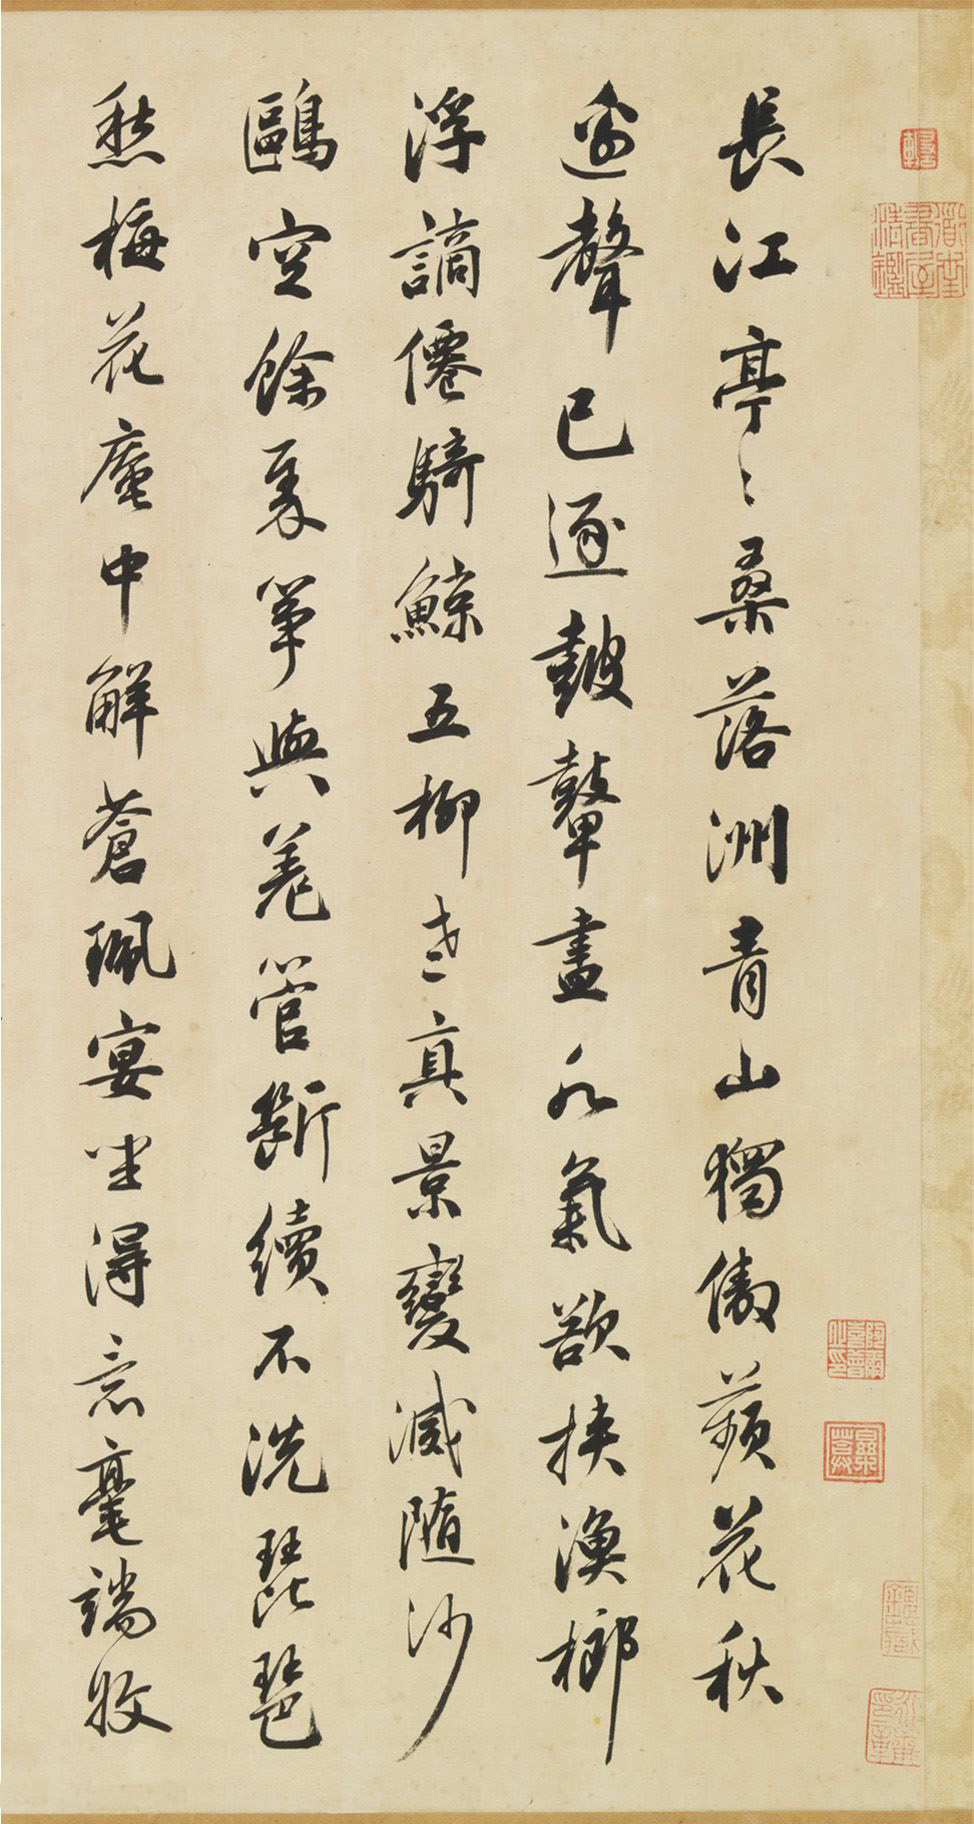 長江亭〻桑落洲青山獨傲蘋花秋
邊聲已逐鼓鼙盡水氣欲挾漁榔
浮謫僊騎鯨五柳老真景變滅隨沙
鷗空餘秦箏與羌管斷續不洗琵琶
愁梅花庵中解蒼珮宴坐得意毫端收